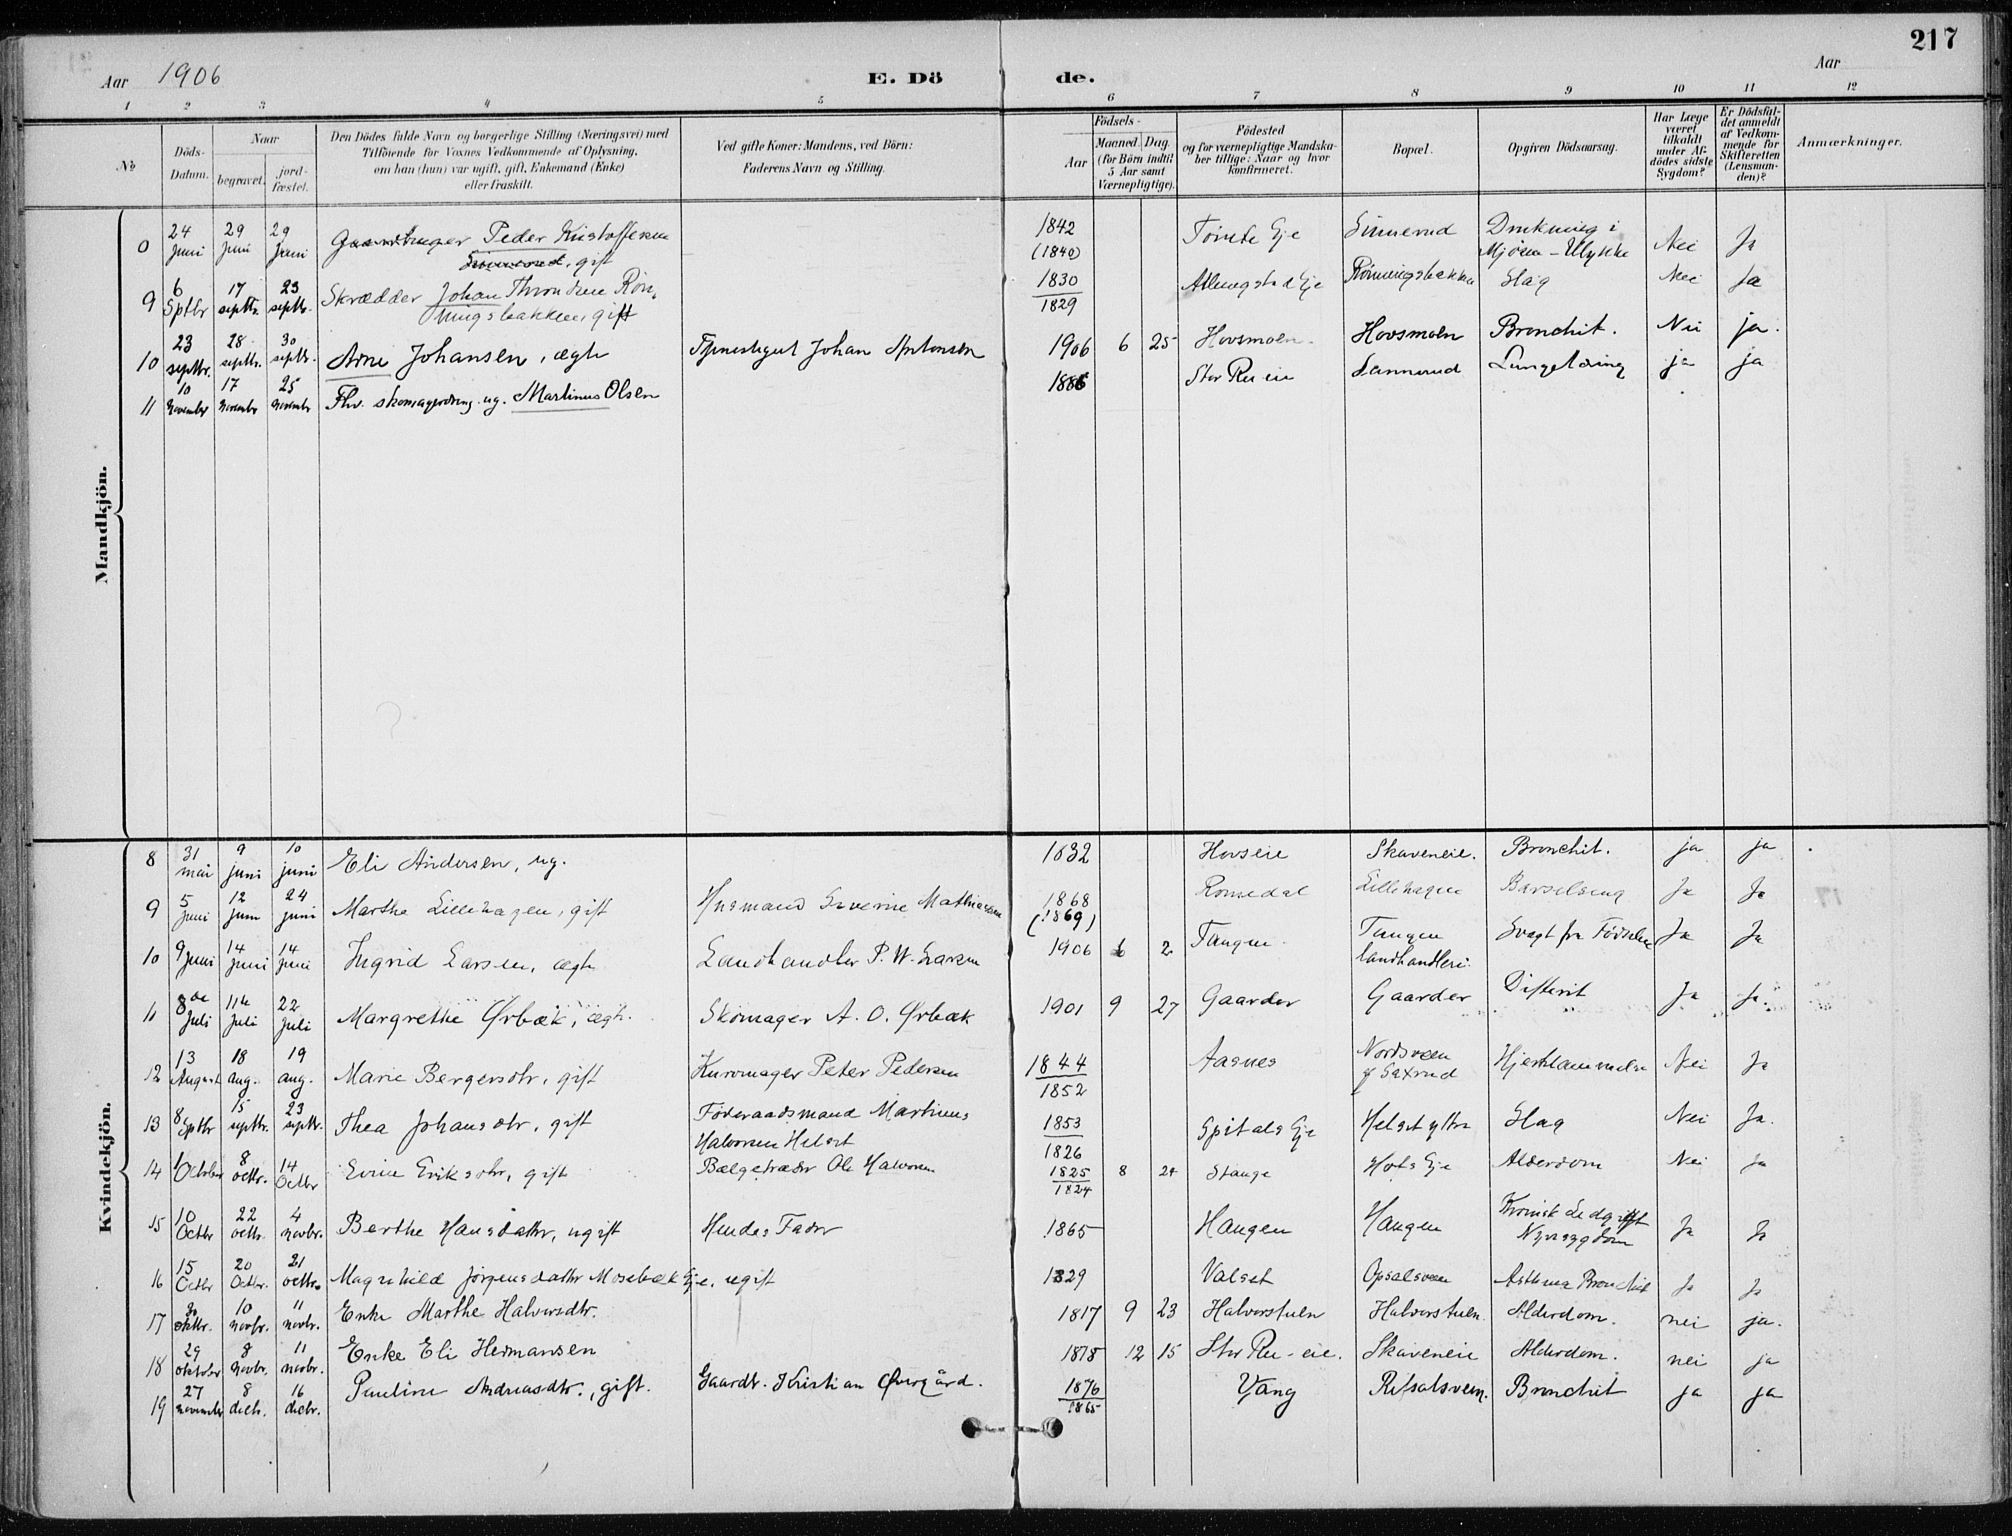 217
Aar 1906
E. Dö de.
Aar
1 2 3 4 5 6 7 8 9 10 11 12
No
Döds-Datum.
Naar
begravet.
jord-fæstet.
Den Dödes fulde Navn og borgerlige Stilling (Næringsvei) med
Tilföiende for Voxnes Vedkommende af Oplysning,
om han (hun) var ugift, gift, Enkemand (Enke)
eller fraskilt.
Ved gifte Koner: Mandens, ved Börn:
Faderens Navn og Stilling.
Födsels-
Aar
Maaned. Dag.
(for Börn indtil
5 Aar samt
Værnepligtige).
Födested
og for værnepligtige Mandska-
ber tillige: Naar og hvor
konfirmeret.
Bopæl.
Opgiven Dödsaarsag.
Har Læge
været
tilkaldt
under Af-
dödes sidste
Sygdom?
Er Dödsfal-
det anmeldt
af Vedkom-
mende for
Skifteretten
(Lensman-
den)?
Anmærkninger.
Mandkjön.
24 Juni 29 Juni 29 Juni Peder Kristoffersen 1842 Eje Drukning i
gift (1840) Mjøsen - Ulykke Nei Ja
9 6 Sptbr 17 septbr. 23 septbr. Skrædder Johan Throndsen Røn- 1830 Eje Rønningsbakken Slag Nei Ja
ningsbakken, gift 1829
10 23 septbr. 28 septbr. 30 septbr. Arne Johansen, ægte Tjenestegut Johan Antonsen 1906 6 25 Hovsmoen Hovsmoen Bronchit. Nei ja.
11 10 november 17 november 25 november Fhv. ug. Martinus Olsen Stor Ru eie ja ja
Kvindekjön.
8 31 mai 9 juni 10 juni Eli Andersen, ug. 1832 Hovseie Skaveneie. Bronchit. ja ja
9 5 Juni 12 juni 24 juni Marthe Lillehagen, gift Husmand Severin Mathiesen 1868 Romedal Lillehagen Barselseng Ja Ja
(1869)
10 9 Juni 14 juni 14 juni Ingrid Larsen, ægte Landhandler P. W. Larsen 1906 6 2 Tangen Tangen Svagt fra Fødselen Ja Ja
landhandleri.
11 8de Juli 11te juli 22 juli Margrethe Ørbæk, ægte. Skomager A. O. Ørbæk 1901 9 27 Gaarder Gaarder Difterit Ja Ja.
12 13 August 18 aug. 19 aug. Marie Bergersdtr, gift Kurvmager Peter Pedersen 1844 Aasnes Nordsveen Nei Ja
1852
13 8 Sptbr 15 septbr. 23 septbr. Thea Johansdtr, gift Føderaadsmand Martinus 1853 Spitals Eje Slag Nei Ja.
Halvorsen Helset 1826
14 Octobr 8 octbr. 14 Octbr Eriksdtr, gift Ole Halvorsen 1825 8 Stange Eje Alderdom Nei ja
1824
15 10 Octbr 22 octbr. 4 novbr. Berthe Hansdatter, ugift Hendes Fader 1865 Haugen Haugen Kronisk Ledgigt Ja Ja
Nyresygdom
16 15 Octbr 20 Octbr. 21 octbr. Magnhild Jørgensdatter Mosebæk Eje, ugift 1829 Valset Opsalsveen Asthma Bronchit Ja Ja
17 30 oktbr. 10 novbr. 11 novbr. Enke Marthe Halvorsdtr. 1817 9 23 Halvorstuen Halvorstuen. Alderdom. nei ja.
18 29 oktober 8 novbr. 11 novbr. Enke Eli Hermansen 12 15 Stor Ru-eie. Skaveneie Alderdom. nei ja
19 27 november 8 decb. 16 decbr. Pauline Andreasdtr., gift. Gaardbr. Kristian Øvergård. 1876 Vang Refsalsveen. Bronchit ja ja
1865